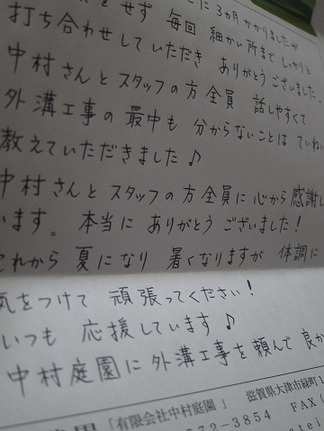 に3ヵ月かかりましたが
せず 毎回 細かい所まで しっかりと
打ち合わせしていただき ありがとうございました。
中村さんとスタッフの方全員 話しやすくて
外溝工事の最中も 分からないことは ていねい
教えていただきました♪
中村さんとスタッフの方全員に心から感謝し
います。本当に ありがとう ございました!
これから 夏になり 暑くなりますが 体調に
気をつけて 頑張ってください!
いつも 応援しています♪
中村庭園に外溝工事を頼んで 良か
「有限会社中村庭園」 滋賀県大津市緑町1
572-3854 FAX(